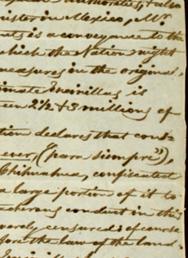 authorities, & also
ister in Mexico, Mr
is a conveyance to the
which the Nation might
measures in the original,
is
een 2½ & 3 millions of
tion declares that cont
ever, (para siempre"),
Chihuahua, confiscated
a large portion of it to
conduct in this
verely censured; of course
fore the law of the land.